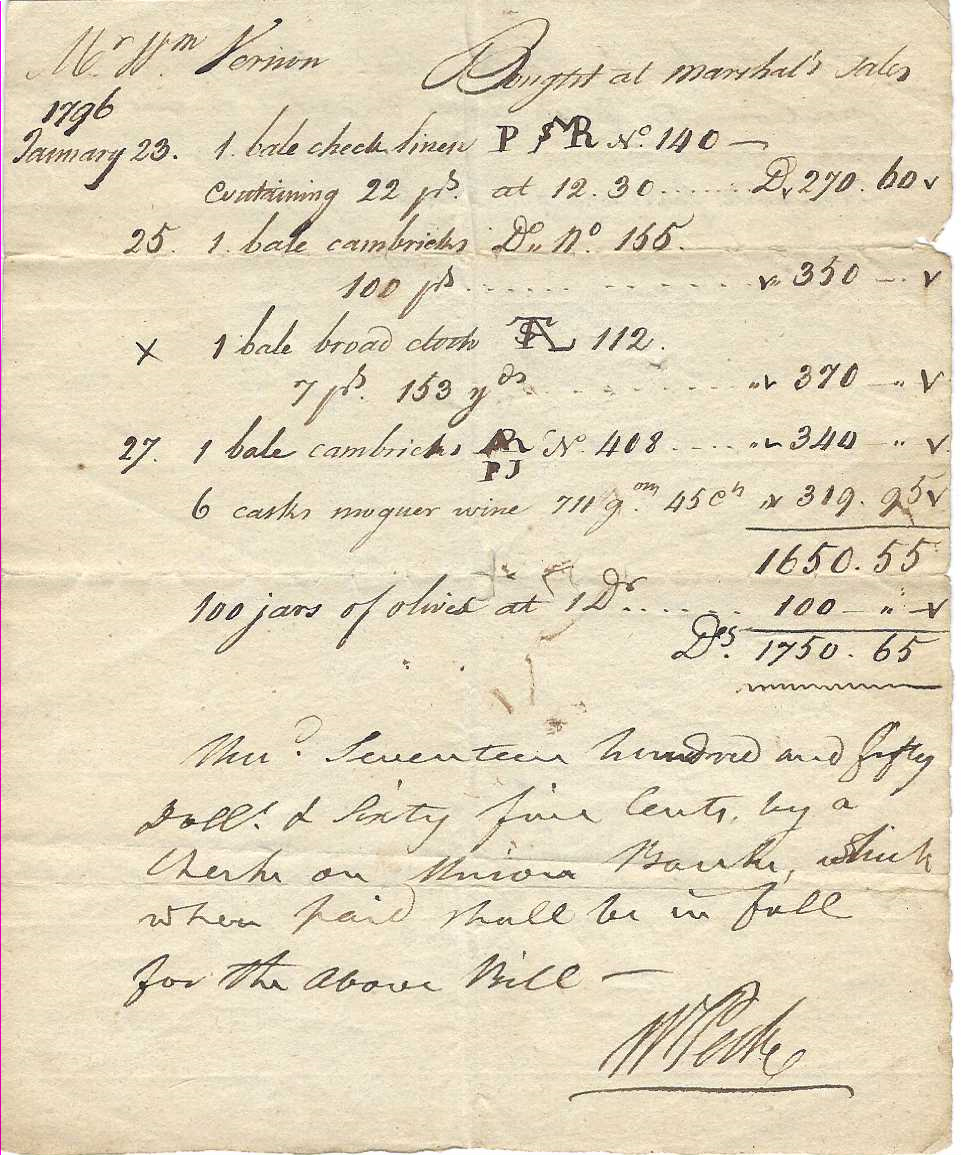 Mr. Wm Vernon Bought at marshal's sales
1796
January 23. 1 bale check linen P $ R No. 140 —
containing 22 ps. at 12.30 ....... D. 270. 60
25. 1 bale cambricks Do. No 155.
100 ps ....... " 350 — .
x 1 bale broad cloth 112.
7 ps. 153 yds ....... " 370 — "
27. 1 bale cambricks R No. 408 ....... " 340 — "
PJ
6 casks moguer wine 711 gons. 45 Cts " 319. 95
1650. 55
100 jars of olives at 1 Dr. ....... 100 — " —
Drs. 1750. 65
Seventeen hundred and fifty
Dolls. & Sixty five Cents, by a
Check on Union Bank, which
when paid shall be in full
for the above Bill —
W Peck